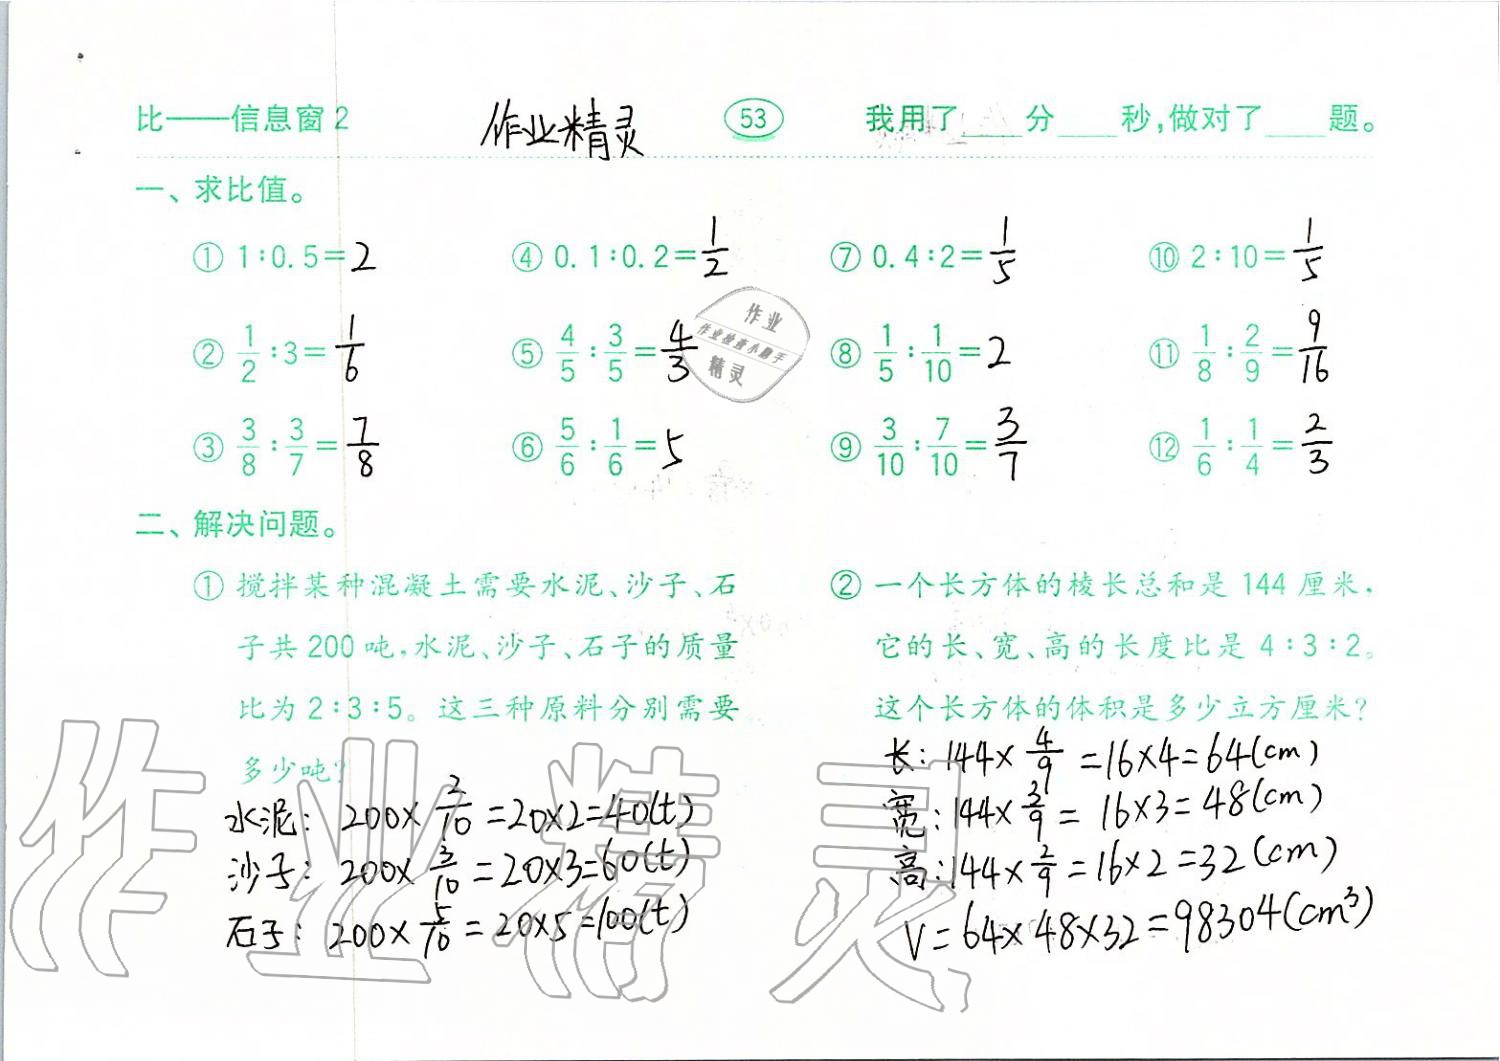 比——信息窗2 作业精灵 53 我用了____分____秒,做对了____题。
一、求比值。
① 1:0.5=2 ④ 0.1:0.2=1/2 ⑦ 0.4:2=1/5 ⑩ 2:10=1/5
② 1/2:3=1/6 ⑤ 4/5:3/5=4/3 ⑧ 1/5:1/10=2 ⑪ 1/8:2/9=9/16
③ 3/8:3/7=7/8 ⑥ 5/6:1/6=5 ⑨ 3/10:7/10=3/7 ⑫ 1/6:1/4=2/3
作业
作业检查小助手
精灵
二、解决问题。
① 搅拌某种混凝土需要水泥、沙子、石
子共200吨,水泥、沙子、石子的质量
比为2:3:5。这三种原料分别需要
多少吨?
水泥: 200×2/10=20×2=40(t)
沙子: 200×3/10=20×3=60(t)
石子: 200×5/10=20×5=100(t)
② 一个长方体的棱长总和是144厘米,
它的长、宽、高的长度比是4:3:2。
这个长方体的体积是多少立方厘米?
长:144×4/9=16×4=64(cm)
宽:144×3/9=16×3=48(cm)
高:144×2/9=16×2=32(cm)
V=64×48×32=98304(cm³)
作业精灵